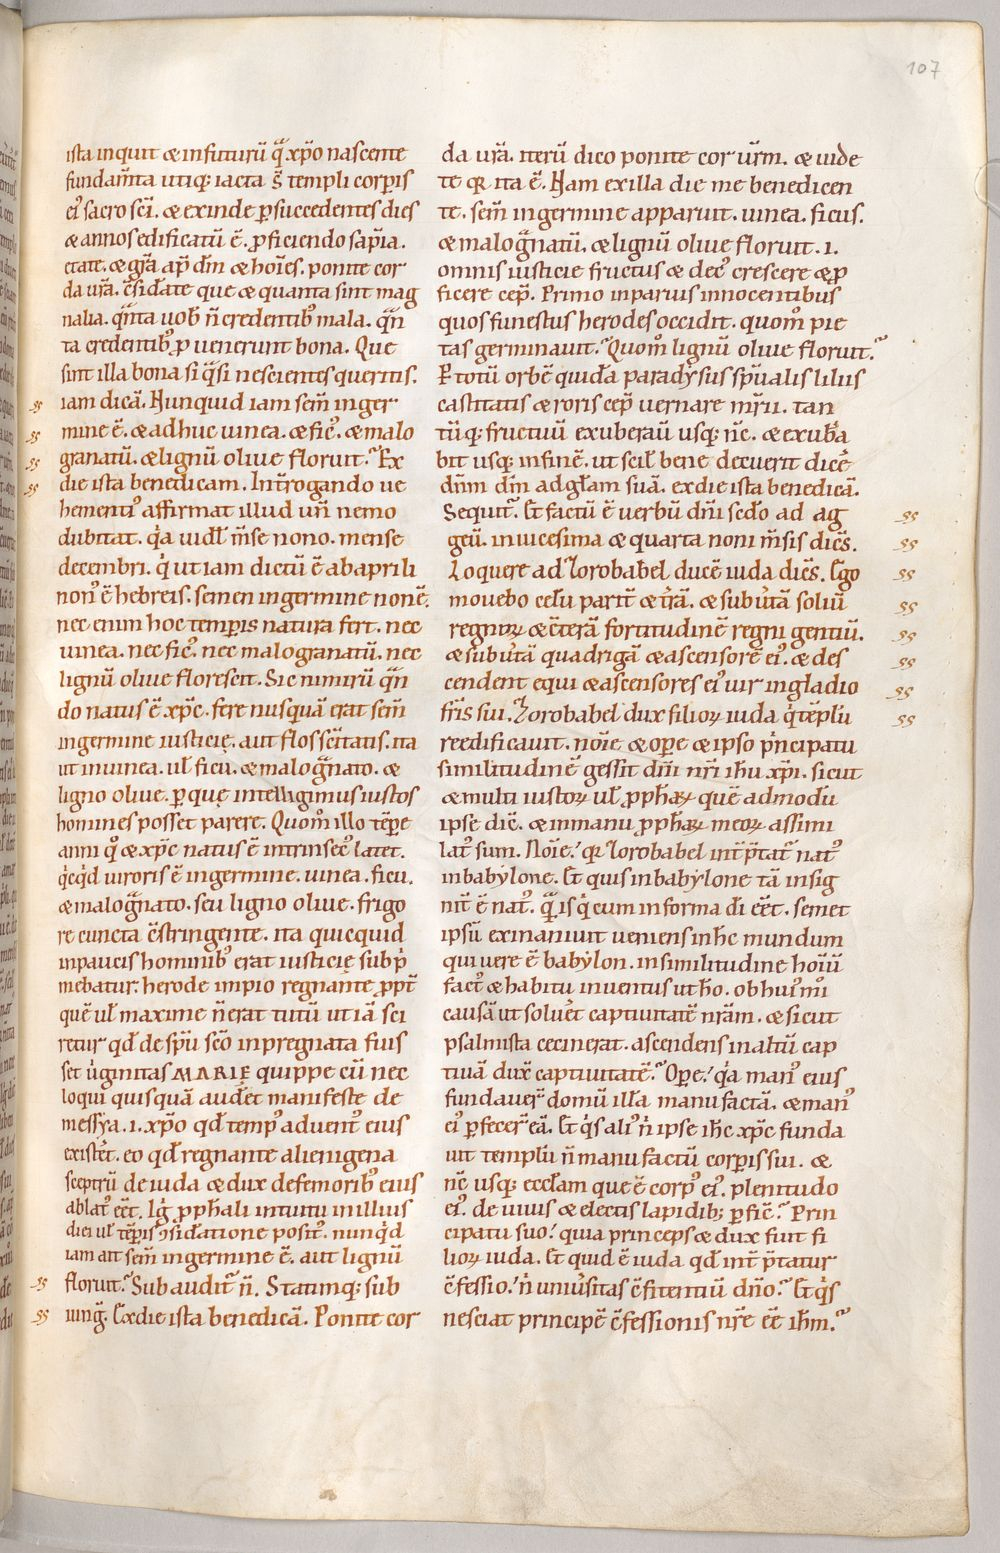 107
ista inquit & infuturū q̄a xp̄o nascente
fundam̄ta utiq; iacta s̄ templi corꝑis
ei᾽ sacro sc̄i. & exinde ꝑ succedentes dies
& annos edificatū ē. ꝓficiendo sap̄ia.
etate. & gr̄a ap̄ dm̄ & hoīes. ponite cor
da ur̄a. c̄siđate que & quanta sint mag
nalia. q̄nta uob̄ n̄ credentib᾽ mala. q̄n
ta credentib᾽ ꝓuenerunt bona. Que
sint illa bona si q̄si nescientes queritis.
iam dicā. Nunquid iam sem̄ inger
mine ē. & adhuc uinea. & fic᾽. & malo
granatū. & lignū oliue floruit. Ex
die ista benedicam. Int̄rogando ue
hementi᾽ affirmat illud un̄ nemo
dubitat. q̇a uidł m̄se nono. mense
decembri. q̇ ut iam dictū ē ab aprili
non᾽ ē hebreis. semen in germine non ē.
nec enim hoc temꝑis natura fert. nec
uinea. nec fic᾽. nec malogranatū. nec
lignū oliue florescit. Sic nimirū q̄n
do natus ē xp̄c. fere nusquā erat sem̄
in germine iusticię. aut flos sc̄itatis. ita
ut in uinea. uł ficu. & maloḡnato. &
ligno oliue. ꝑ quę intelligimus iustos
homines posset parere. Quom᾽ illo tēꝑe
anni q᾽ & xp̄c natus ē intrinsec᾽ latet.
q̇cq̇d uiroris ē in germine. uinea. ficu.
& maloḡnato. seu ligno oliue. frigo
re cuncta c̄stringente. ita quicquid
in paucis hominib᾽ erat iusticię sub ṗ
mebatur. herode impio regnante ꝓpt̄
quē uł maxime n̄ erat tutū ut iā sci
retur qđ de sp̄u sc̄o inpregnata fuis
set u̇ginitas MARIĘ quippe cū nec
loqui quisquā audēt manifeste de
messya. i. xp̄o qđ temp᾽ aduent᾽ eius
existēt. eo qđ regnante alienigena
sceptrū de iuda & dux de femorib᾽ eius
ablat᾽ eēt. Ig᾽ ꝓpħali intuitu in illius
diei uł tēꝑis ꝯsiđatione posit᾽. nunq̇d
iam ait sem̄ in germine ē. aut lignū
floruit. Subaudit᾽ n̄. Statimq; sub
iunḡ. Ex die ista benedicā. Ponite cor
da ur̄a. iterū dico ponite cor ur̄m. & uide
te qr ita ē. Nam ex illa die me benedicen
te. sem̄ in germine apparuit. uinea. ficus.
& maloḡnatū. & lignū oliue floruit. i.
omnis iusticie fructus & dec᾽ crescere & ꝓ
ficere cep̄. Primo in paruis innocentibus
quos funestus herodes occidit. quom᾽ pie
tas germinauit. Quom᾽ lignū oliue floruit.
P totū orbē quiđa paradysus sp̄ualis liliis
castitatis & roris cep̄ uernare mr̄ii. tan
tūq; fructuū exuberaū usq; n̄c. & exub̄a
bit usq; in finē. ut scił bene decuerit dicē
dn̄m dm̄ ad gł̄am suā. ex die ista benedicā.
Sequit᾽. Et factū ē uerbū dn̄i sc̄do ad ag
geū. in uicesima & quarta noni m̄sis dic̄s.
Loquere ad Zorobabel ducē iuda dic̄s. Ego
mouebo cęlū parit̄ & t̄rā. & subu̇tā soliū
regnoꝝ & c̄terā fortitudinē regni gentiū.
& subu̇tā quadrigā & ascensorē ei᾽. & des
cendent equi & ascensores ei᾽ uir in gladio
fr̄is sui. Zorobabel dux filioꝝ iuda q̇ tēplū
reedificauit. noīe & oꝑe & ipso ṗncipatu
similitudinē gessit dn̄i nr̄i ihu xp̄i. sicut
& multi iustoꝝ uł ꝓpħaꝝ quē admodū
ipse dic̄. & in manu ꝓpħaꝝ meoꝝ assimi
lat᾽ sum. Noīe. qr Zorobabel int̄p̄tat᾽ nat᾽
in babylone. Et quis in babylone tā insig
nit᾽ ē nat᾽. q̄a is q̇ cum in forma di eēt. semet
ipsū exinaniuit ueniens in h̄c mundum
qui uere ē babylon. in similitudine hoīū
fact᾽ & habitu inuentus ut ħo. ob hui᾽mi
causā ut soluēt captiuitatē nr̄am. & sicut
psalmista cecinerat. ascendens in altū cap
tiuā dux᾽ captiuitatē. Oꝑe. q̇a man᾽ eius
fundauer̄ domū illā manufactā. & man᾽
ei᾽ ꝑfecer̄ eā. Et q̇s ali᾽ n̄ ipse ih̄c xp̄c funda
uit templū n̄ manu factū corꝑis sui. &
n̄c usq; eccłam que ē corp᾽ ei᾽. plenitudo
ei᾽. de uiuis & electis lapidib; ꝑfic̄. Prin
cipatu suo. quia princeps & dux fuit fi
lioꝝ iuda. Et quid ē iuda qđ int̄p̄tatur
c̄fessio. n̄ uniu̇sitas c̄fitentiū dn̄o. Et q̇s
nesciat principē c̄fessionis nr̄e eē ih̄m.